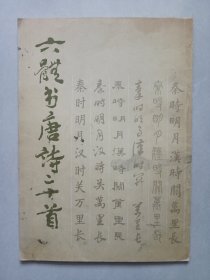 六體书唐詩三十首
秦時明月漢時關萬里長
秦時明月漢時關萬里長
秦時明月漢時關萬里長
秦時明月漢時关萬里長
秦时明月汉时关万里长